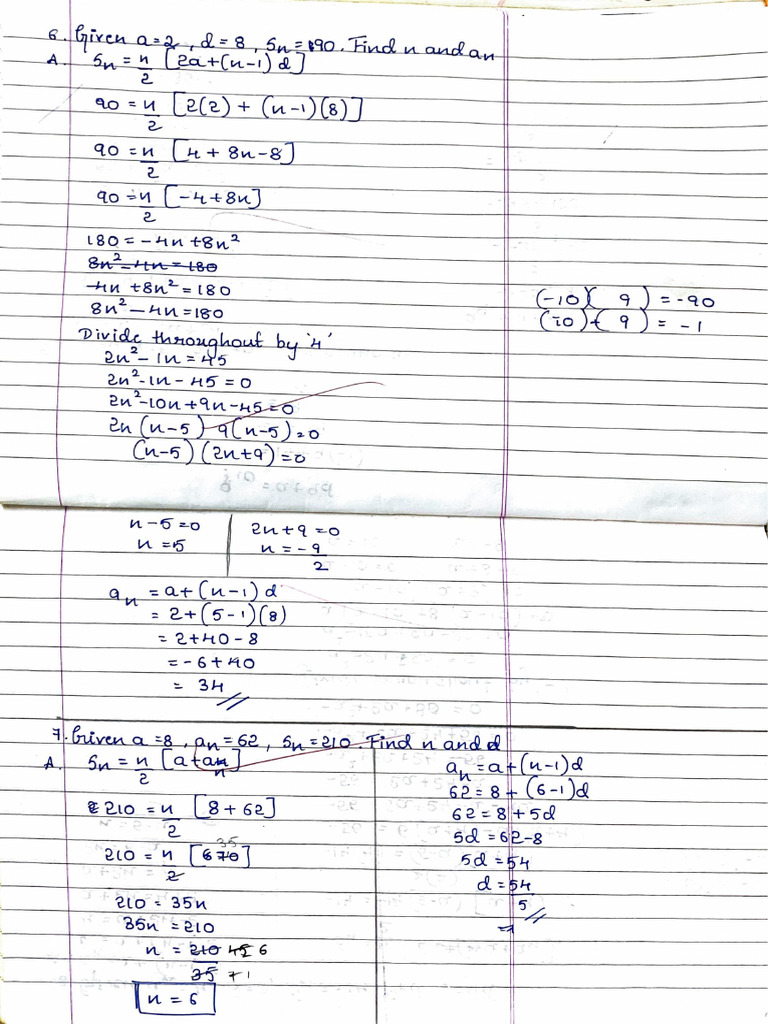 6. Given a=2, d=8, Sn=90. Find n and an
A. Sn = n/2 [2a+(n-1)d]
90 = n/2 [2(2) + (n-1)(8)]
90 = n/2 [4 + 8n-8]
90 = n/2 [-4+8n]
180 = -4n+8n²
8n²-4n=180
-4n +8n² = 180
8n² -4n=180
(-10)( 9) = -90
(-10)+( 9) = -1
Divide throughout by '4'
2n²-1n = 45
2n²-1n-45 = 0
2n²-10n+9n-45=0
2n(n-5) 9(n-5)=0
(n-5)(2n+9)=0
n-5=0 | 2n+9=0
n=5 | n=-9/2
an = a+(n-1)d
= 2+(5-1)(8)
= 2+40-8
= -6+40
= 34
7. Given a=8, an=62, Sn=210. Find n and d
A. Sn = n/2 [a+an]
210 = n/2 [8+62]
210 = n/2 [70] 35
210 = 35n
35n = 210
n = 210/35 6
7 1
n = 6
an = a+(n-1)d
62=8+(6-1)d
62=8+5d
5d=62-8
5d=54
d=54/5